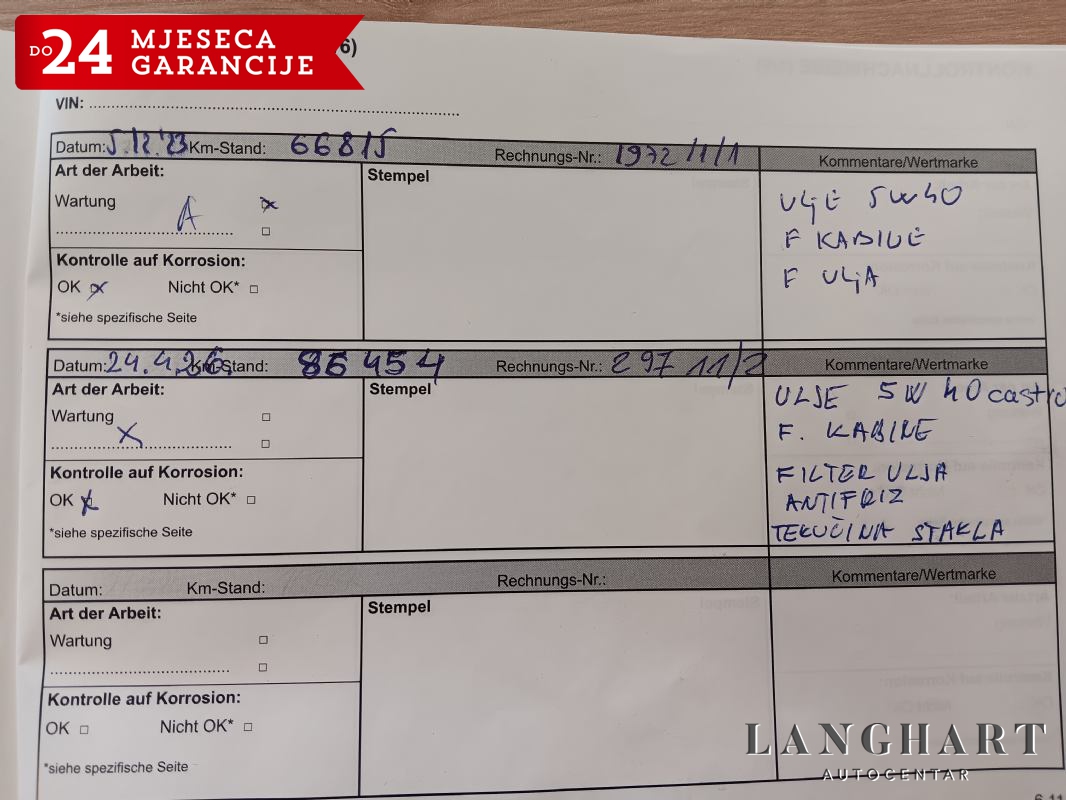 DO 24 MJESECA
GARANCIJE
6)
VIN:
Datum: 5.12.'23 Km-Stand: 66815 Rechnungs-Nr.: 1972/1/1 Kommentare/Wertmarke
Art der Arbeit:
Stempel
Wartung A
ULJE 5W40
F KABINE
F ULJA
Kontrolle auf Korrosion:
OK Nicht OK*
*siehe spezifische Seite
Datum: 24.4.26. Km-Stand: 86454 Rechnungs-Nr.: 297 11/2 Kommentare/Wertmarke
Art der Arbeit:
Stempel
Wartung
ULJE 5W 40 castro
F. KABINE
FILTER ULJA
ANTIFRIZ
TEKUČINA STAKLA
Kontrolle auf Korrosion:
OK Nicht OK*
*siehe spezifische Seite
Datum: Km-Stand: Rechnungs-Nr.: Kommentare/Wertmarke
Art der Arbeit:
Stempel
Wartung
Kontrolle auf Korrosion:
OK Nicht OK*
*siehe spezifische Seite
LANGHART
AUTOCENTAR